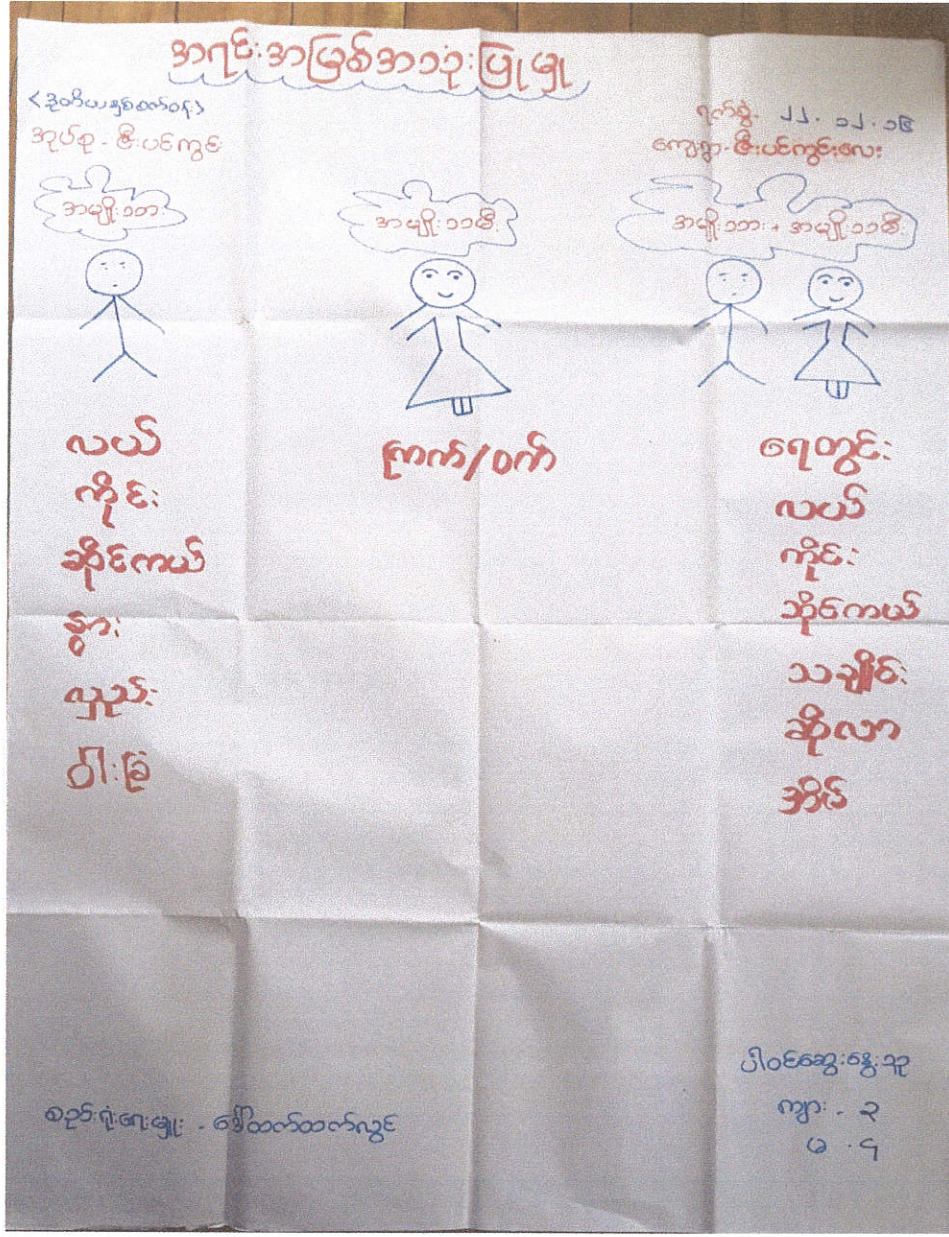 အရင်းအမြစ်အသုံးပြုမှု
<ဒုတိယနှစ်ဝက်ဝန်း>
အုပ်စု - ဇီးပင်ကွင်း
ရက်စွဲ - ၂၂.၁၂.၁၆
ကျေးရွာ - ဇီးပင်ကွင်းလေး
အမျိုးသား
အမျိုးသမီး
အမျိုးသား + အမျိုးသမီး
လယ်
ကိုင်း
ဆိုင်ကယ်
နွား
လှည်း
ဝါးခြံ
ကြက်/ဝက်
ရေတွင်း
လယ်
ကိုင်း
ဆိုင်ကယ်
သချိုင်း
ဆိုလာ
အိမ်
စည်းရုံးရေးမှူး - ဒေါ်ထက်ထက်လွင်
ပါဝင်ဆွေးနွေးသူ
ကျား - ၃
မ - ၄